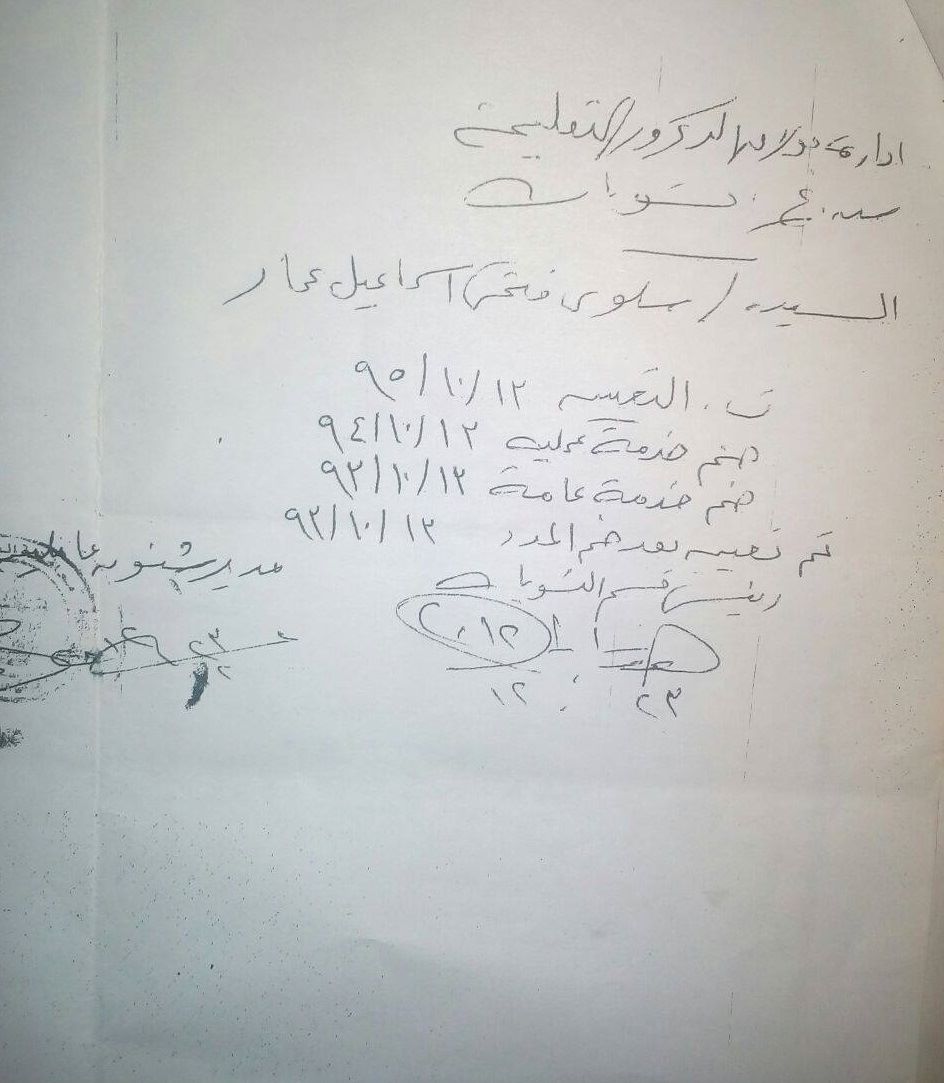 ادارة بولاق الدكرور التعليمية
تسويات
السيدة / سلوى فتحى اسماعيل عمار
ت . التعيين ١٢/١٠/٩٥
ضم خدمة عملية ١٢/١٠/٩٤
ضم خدمة عامة ١٢/١٠/٩٣
تم تعيينه بعد ضم المدد ١٢/١٠/٩٣
رئيس قسم التسويات
مدير شئون عاملين
٢٣
١٢